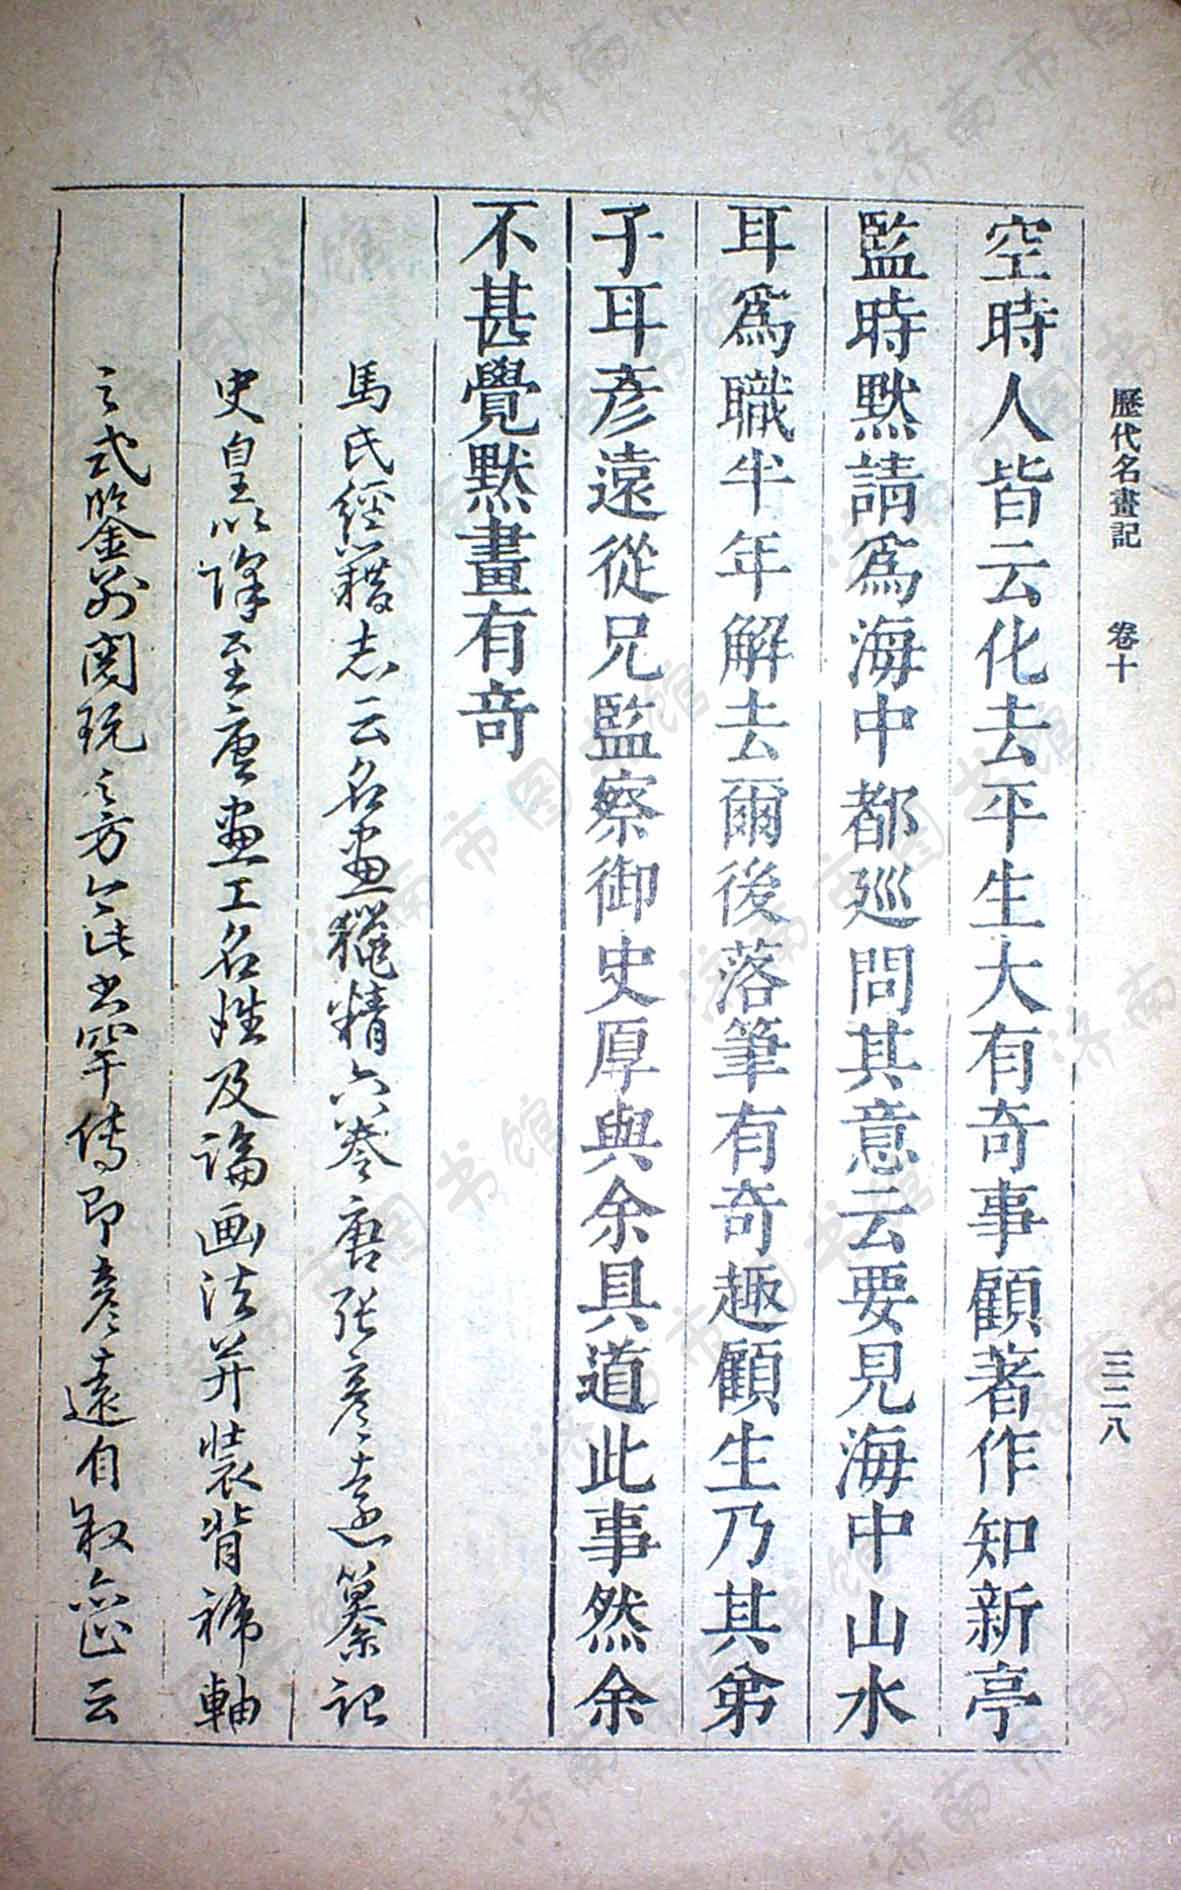 歷代名畫記 卷十 三二八
空時人皆云化去平生大有奇事顧著作知新亭
監時默請爲海中都廵問其意云要見海中山水
耳爲職半年解去爾後落筆有奇趣顧生乃其弟
子耳彥遠從兄監察御史厚與余具道此事然余
不甚覺默畫有奇
馬氏經籍志云名畫獵精六卷唐張彥遠纂記
史皇以降至唐畫工名姓及論画法并裝背褾軸
之式鑒別閱玩之方今此書罕傳即彥遠自叙亦止云
济南市图书馆